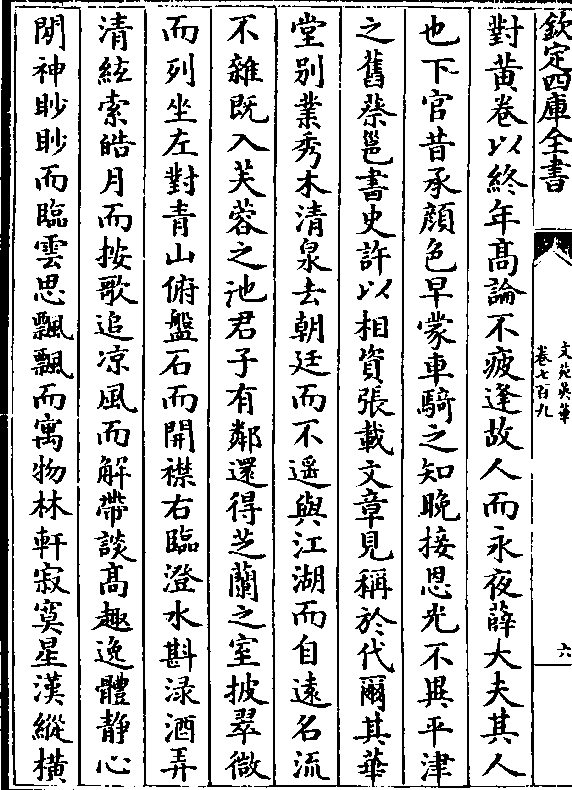 欽定四庫全書
文苑英華
卷七百九
六
對黃卷以終年髙論不疲逢故人而永夜薛大夫其人
也下官昔承顔色早蒙車騎之知晚接恩光不異平津
之舊蔡邕書史許以相資張載文章見稱於代爾其華
堂別業秀木清泉去朝廷而不遥與江湖而自遠名流
不雜既入芙蓉之池君子有鄰還得芝蘭之室披翠微
而列坐左對青山俯盤石而開襟右臨澄水斟渌酒弄
清絃索皓月而按歌追凉風而解帶談髙趣逸體静心
閒神眇眇而臨雲思飄飄而寓物林軒寂寞星漢縱橫